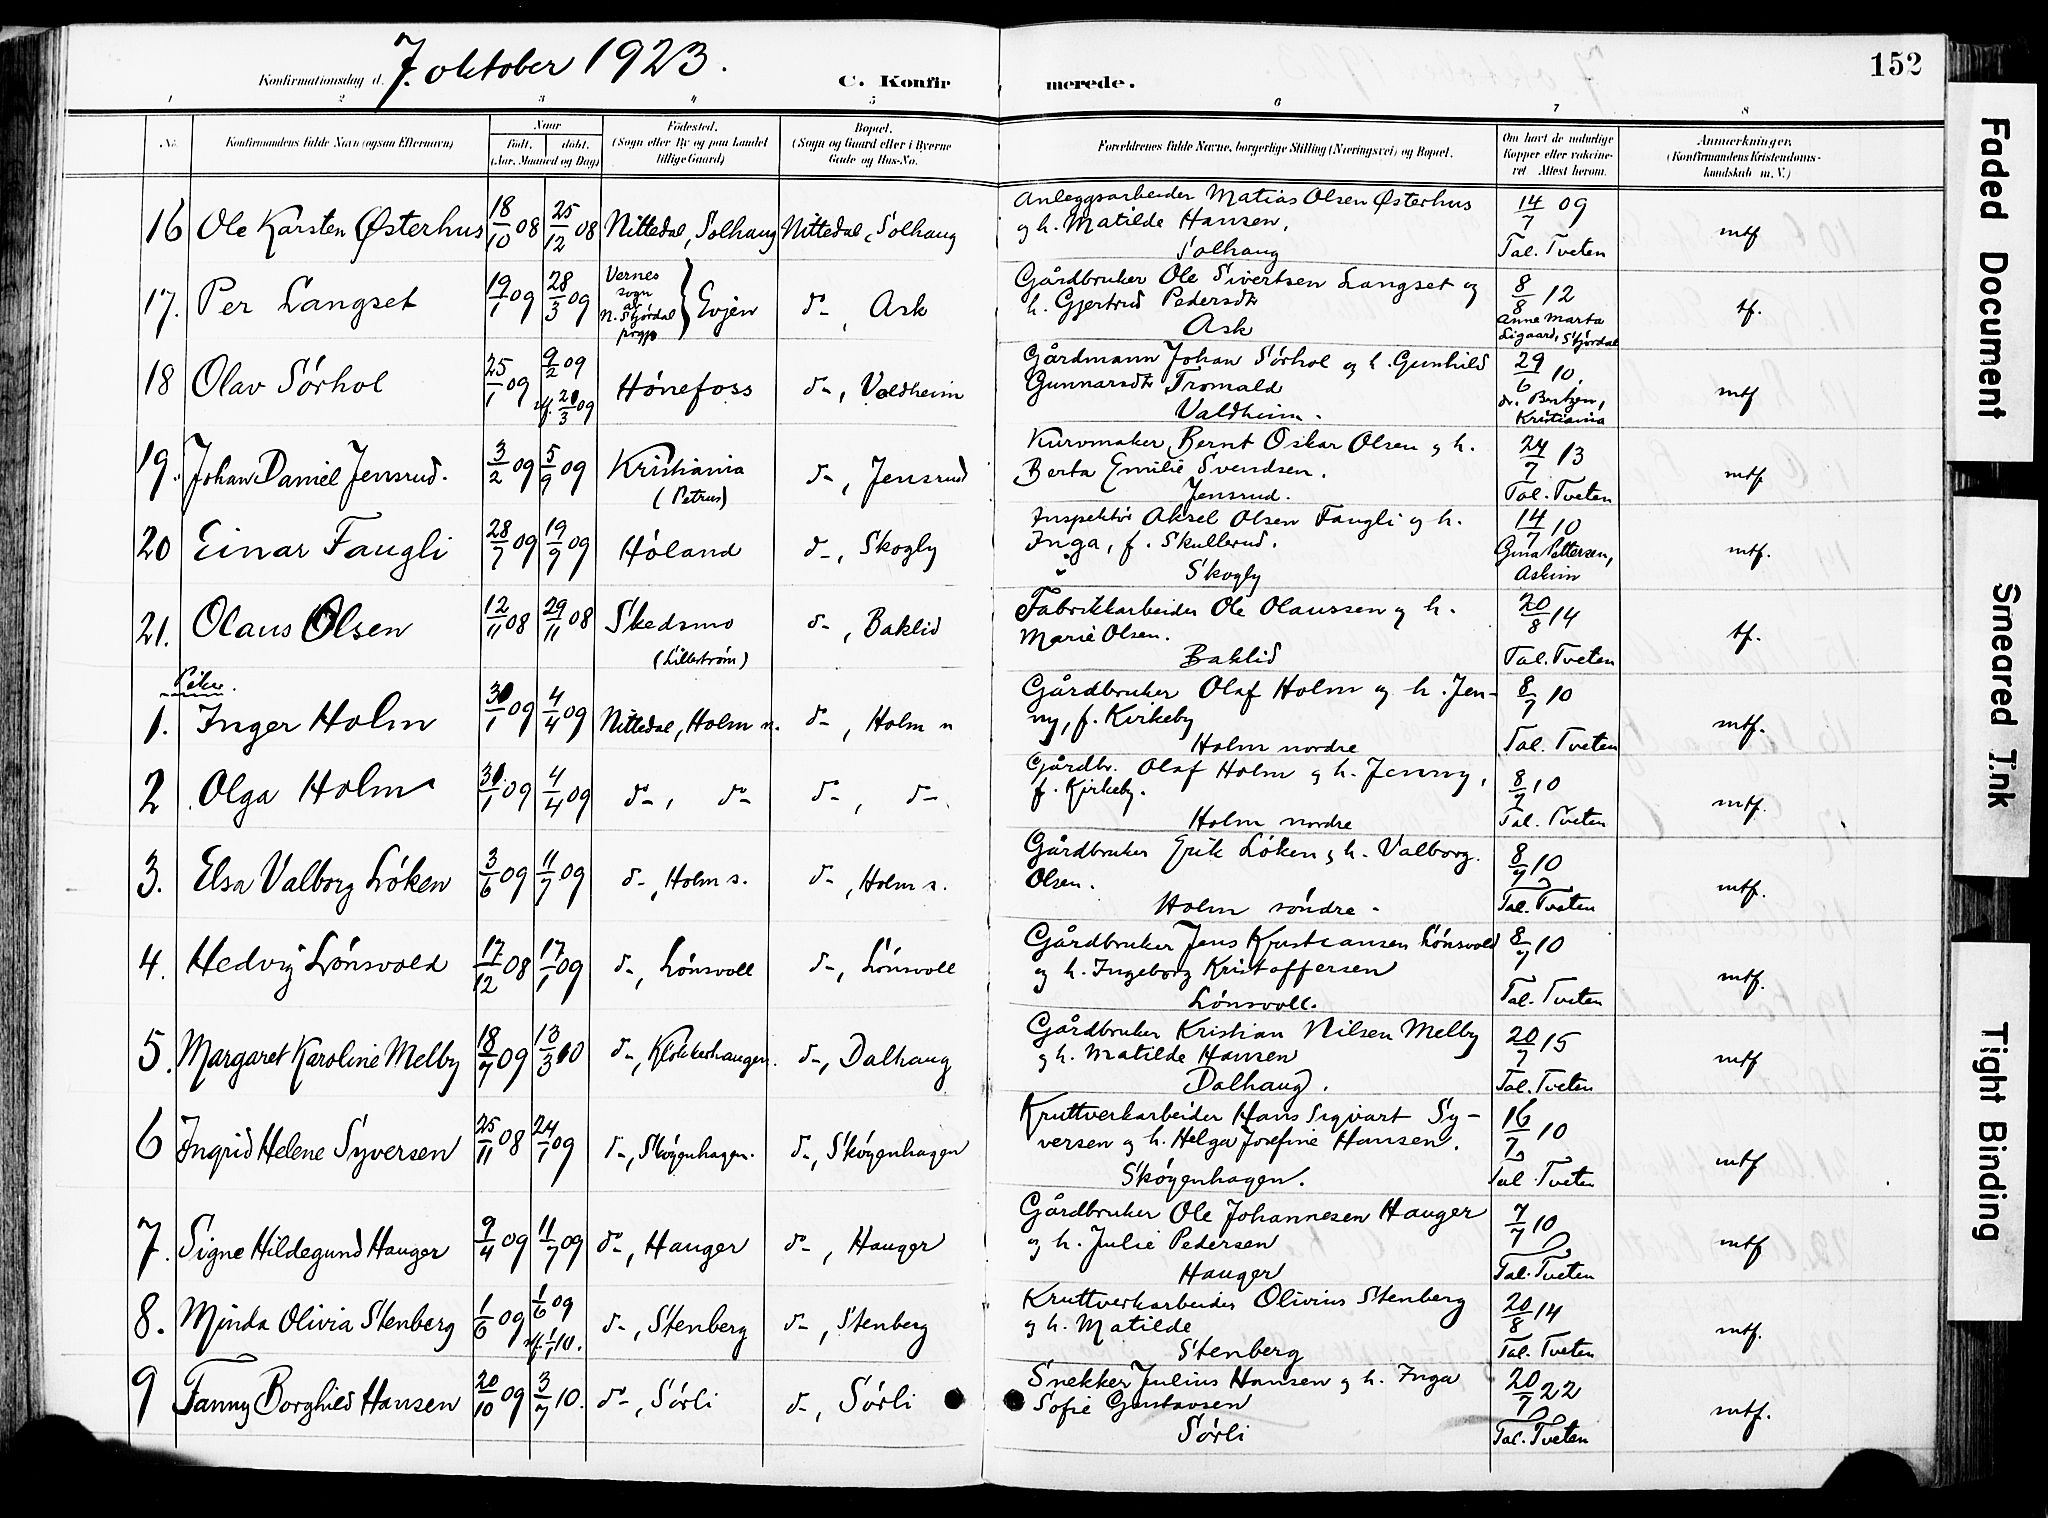 Konfirmationsdag d. 7. oktober 1923.
C. Konfirmerede.
152
1 2 3 4 5 6 7 8
No.
Konfirmandens fulde Navn (ogsaa Efternavn)
Naar
Født. døbt.
(Aar, Maaned og Dag)
Fødested.
(Sogn eller By og paa Landet
tillige Gaard)
Bopæl.
(Sogn og Gaard eller i Byerne
Gade og Hus-No.
Forældrenes fulde Navne, borgerlige Stilling (Næringsvei) og Bopæl.
Om havt de naturlige
Kopper eller vakcine-
ret Attest herom.
Anmærkninger,
(Konfirmandens Kristendoms-
kundskab m. V.)
16 Ole Karsten Østerhus 18/10 08 25/12 08 Nittedal, Solhaug Nittedal, Solhaug
Anleggsarbeider Matias Olsen Østerhus
og h. Matilde Hansen,
Solhaug
14/7 09
Tal. Tveten
mtf
17. Per Langset 19/1 09 28/3 09
Vernes
sogn
av
N. Stjørdal
prgj.
Evjen
do, Ask
Gårdbruker Ole Sivertsen Langset og
h. Gjertrud Pedersdtr
Ask
8/8 12
Anne Marta
Ligaard, Stjørdal
tf.
18 Olav Sørhol 25/1 09 9/2 09
st. 21/3 09
Hønefoss
do, Valdheim
Gårdmann Johan Sørhol og h. Gunhild
Gunnarsdtr Tromald
Valdheim.
29/6 10
dr. Bentzen,
Kristiania
mtf
19. Johan Daniel Jensrud. 3/2 09 5/9 09 Kristiania
(Petrus)
do, Jensrud
Kurvmaker Bernt Oskar Olsen og h.
Berta Emilie Svendsen.
Jensrud.
24/7 13
Tal. Tveten
mtf
20 Einar Faugli 28/7 09 19/9 09 Høland do, Skogly
Inspektør Aksel Olsen Faugli og h.
Inga, f. Skullerud.
Skogly
14/7 10
Gina Pettersen,
Askim
mtf.
21. Olaus Olsen 12/11 08 29/11 08 Skedsmo
(Lillestrøm)
do, Baklid
Fabrikkarbeider Ole Olaussen og h.
Marie Olsen.
Baklid
20/8 14
Tal. Tveten
tf.
Piker.
1. Inger Holm 30/1 09 4/4 09 Nittedal, Holm n. do, Holm n
Gårdbruker Olaf Holm og h. Jen-
ny, f. Kirkeby
Holm nordre
8/7 10
Tal. Tveten
mtf.
2 Olga Holm 31/1 09 4/4 09 do, do do, do
Gårdbr. Olaf Holm og h. Jenny,
f. Kirkeby.
Holm nordre
8/7 10
Tal. Tveten
mtf.
3. Elsa Valborg Løken 3/6 09 11/7 09 do, Holm s. do, Holm s.
Gårdbruker Erik Løken og h. Valborg
Olsen.
Holm søndre.
8/7 10
Tal. Tveten
mtf.
4. Hedvig Lønsvold 17/12 08 17/1 09 do, Lønsvoll do, Lønsvoll
Gårdbruker Jens Kristiansen Lønsvold
og h. Ingeborg Kristoffersen
Lønsvoll.
8/7 10
Tal. Tveten
mtf.
5. Margaret Karoline Melby 18/7 09 13/3 10 do, Klokkerhaugen. do, Dalhaug
Gårdbruker Kristian Nilsen Melby
og h. Matilde Hansen
Dalhaug.
20/7 15
Tal. Tveten
mtf
6 Ingrid Helene Syversen 25/11 08 24/1 09 do, Skøyenhagen. do, Skøyenhagen
Kruttverkarbeider Hans Sigvart Sy-
versen og h. Helga Josefine Hansen.
Skøyenhagen.
16/7 10
Tal. Tveten
mtf.
7. Signe Hildegund Hauger 9/4 09 11/7 09 do, Hauger do, Hauger
Gårdbruker Ole Johannesen Hauger
og h. Julie Pedersen
Hauger
7/7 10
Tal. Tveten
mtf
8. Minda Olivia Stenberg 1/6 09 1/6 09
st. 1/1 10.
do, Stenberg do, Stenberg
Kruttverkarbeider Olivius Stenberg
og h. Matilde
Stenberg
20/8 14
Tal. Tveten
mtf.
9 Fanny Borghild Hansen 20/10 09 3/7 10. do, Sørli do, Sørli
Snekker Julius Hansen og h. Inga
Sofie Gustavsen
Sørli
20/7 22
Tal. Tveten
mtf.
Faded Document
Smeared Ink
Tight Binding